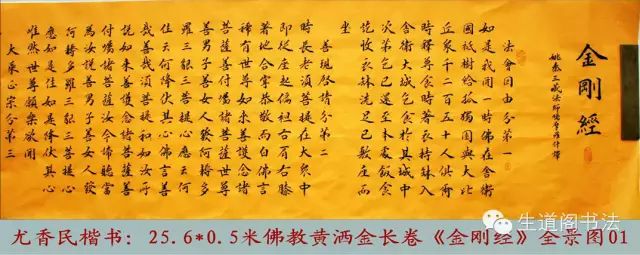 金剛經
姚秦三藏法師鳩摩羅什譯
法會因由分第一
如是我聞一時佛在舍衛
國祇樹給孤獨園與大比
丘衆千二百五十人俱爾
時釋尊食時著衣持缽入
舍衛大城乞食於其城中
次第乞已還至本處飯食
訖收衣缽洗足已敷座而
坐
善現啓請分第二
時長老須菩提在大衆中
即從座起偏袒右肩右膝
著地合掌恭敬而白佛言
稀有世尊如來善護念諸
菩薩善付囑諸菩薩世尊
善男子善女人發阿耨多
羅三藐三菩提心應云何
住云何降伏其心佛言善
哉善哉須菩提如汝所
說如來善護念諸菩薩善
付囑諸菩薩汝今諦聽當
為汝說善男子善女人發
阿耨多羅三藐三菩提心
應如是住如是降伏其心
唯然世尊願樂欲聞
大乘正宗分第三
生道阁书法
尤香民楷书：25.6*0.5米佛教黄洒金长卷《金刚经》全景图01